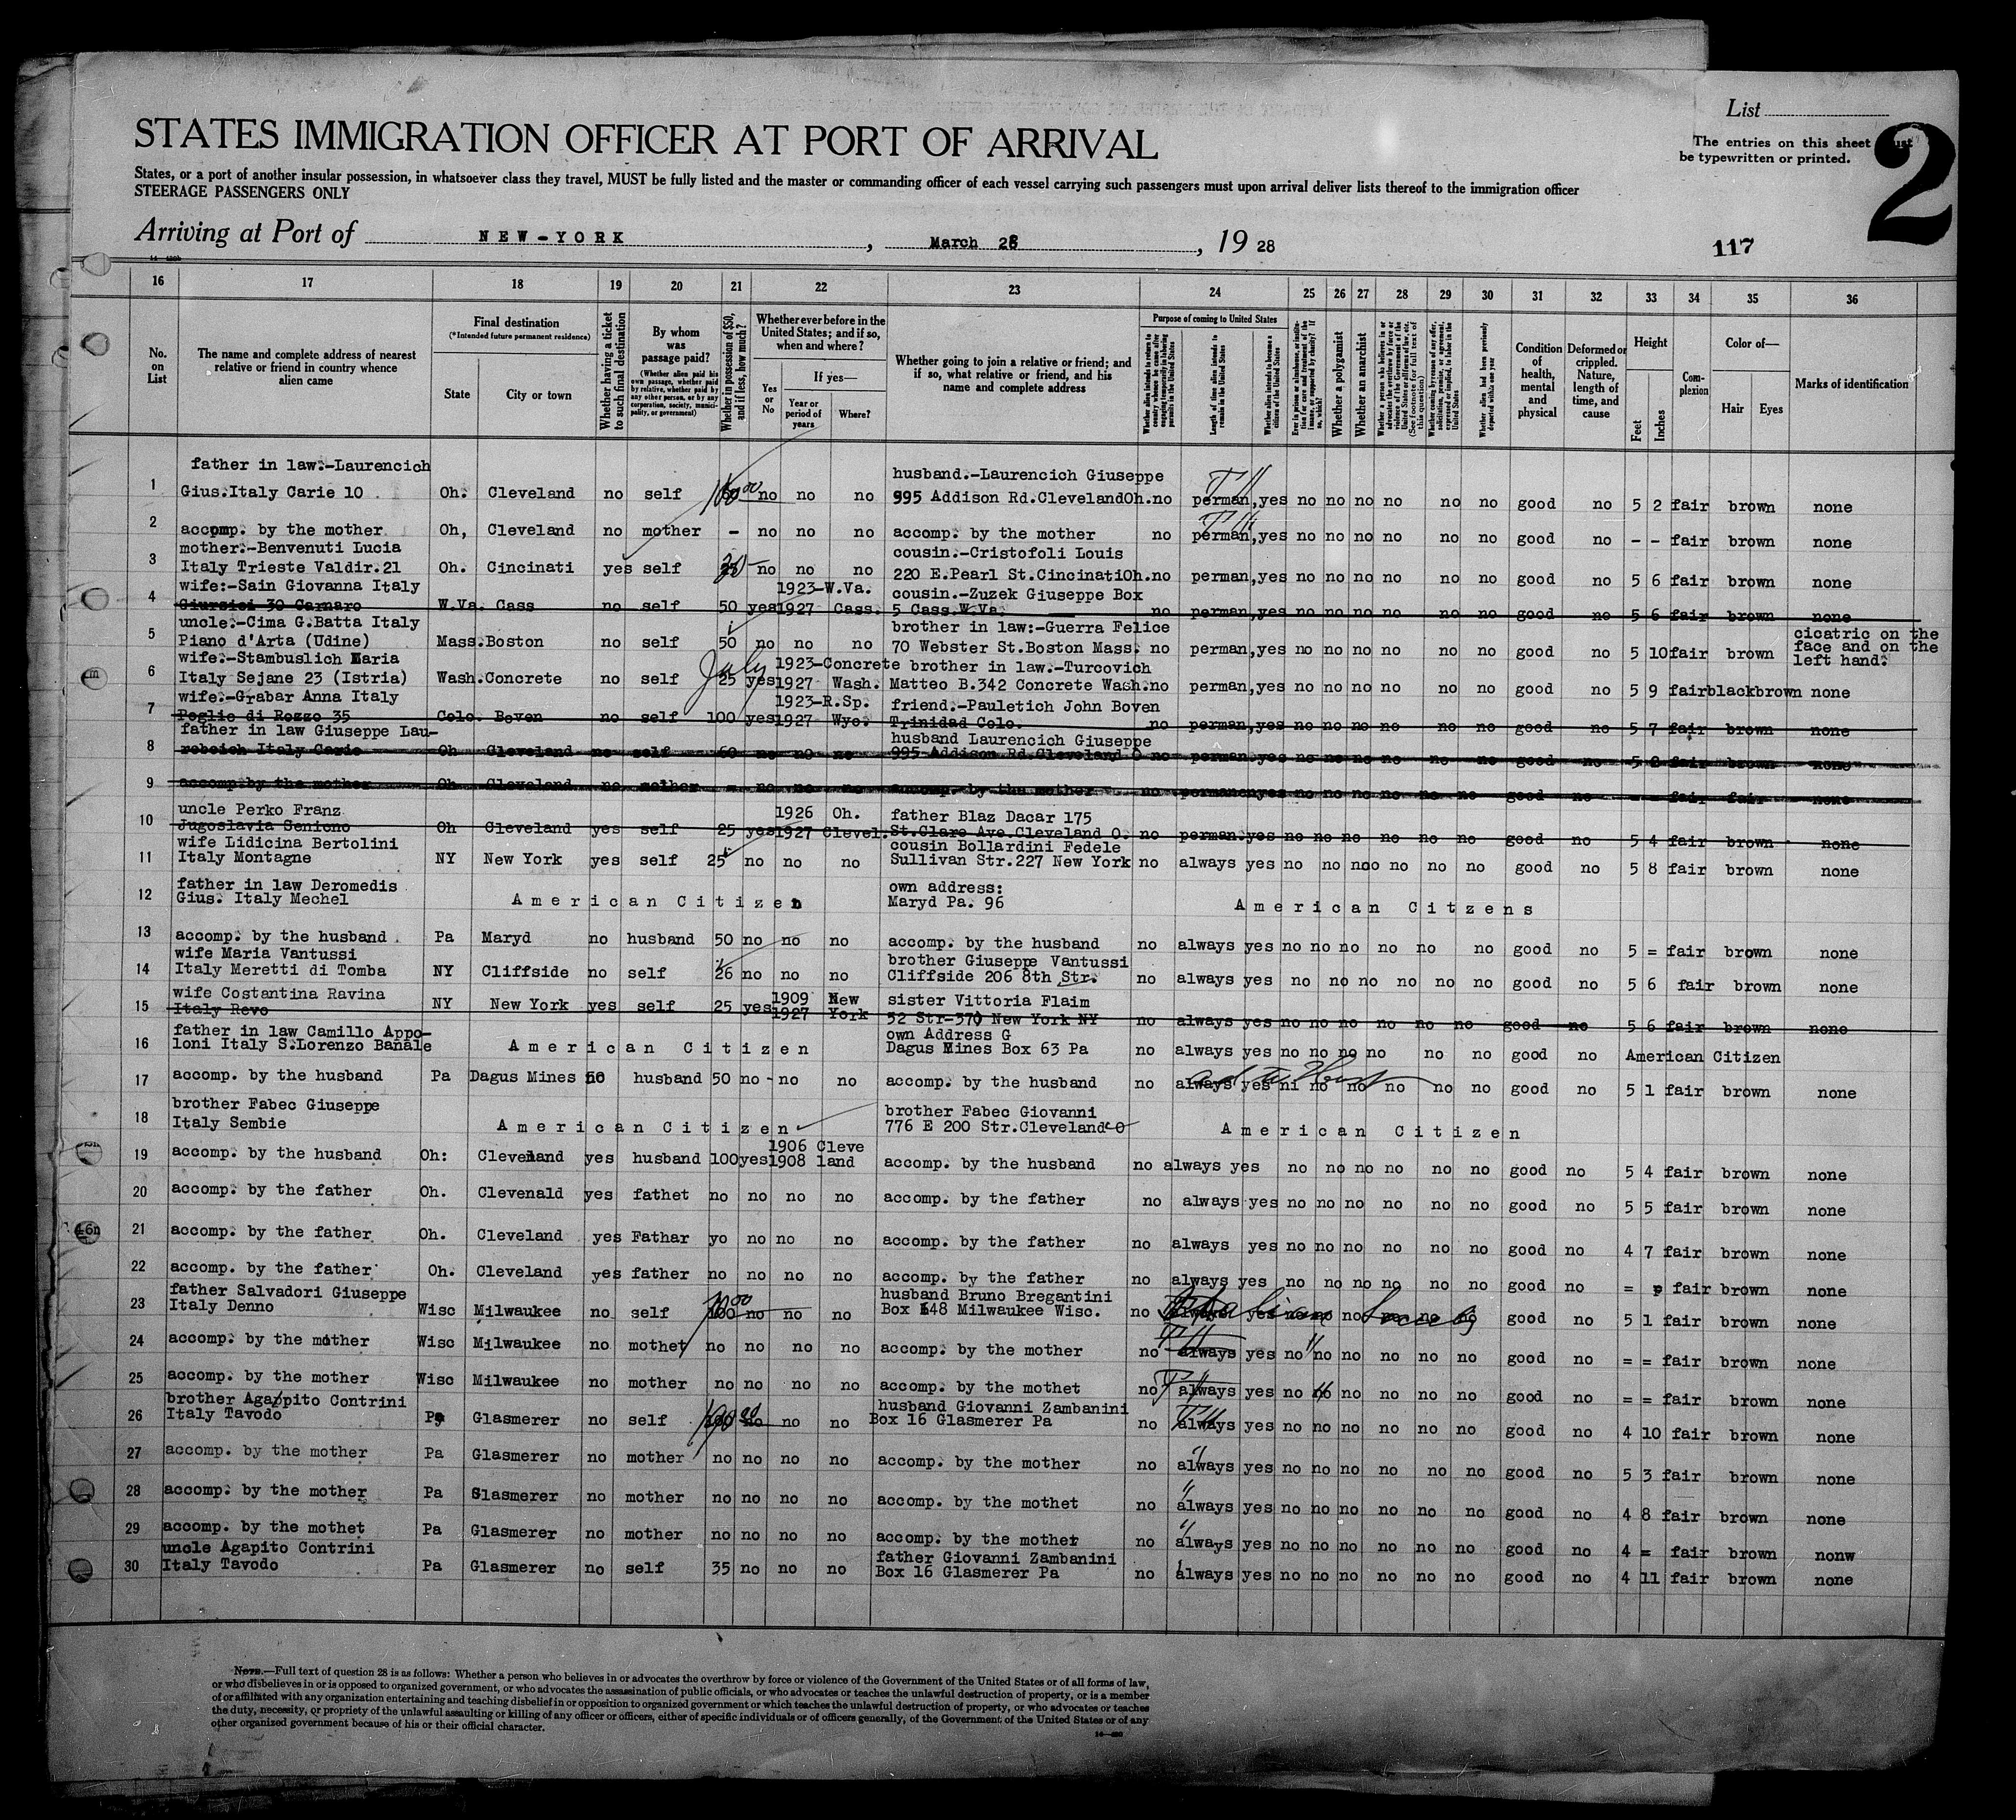 List
The entries on this sheet must
be typewritten or printed.
2
STATES IMMIGRATION OFFICER AT PORT OF ARRIVAL
States, or a port of another insular possession, in whatsoever class they travel, MUST be fully listed and the master or commanding officer of each vessel carrying such passengers must upon arrival deliver lists thereof to the immigration officer
STEERAGE PASSENGERS ONLY
Arriving at Port of NEW-YORK, March 28, 1928
117
16 17 18 19 20 21 22 23 24 25 26 27 28 29 30 31 32 33 34 35 36
No. on List
The name and complete address of nearest relative or friend in country whence alien came
Final destination
(*Intended future permanent residence)
State
City or town
Whether having a ticket to such final destination
By whom was passage paid?
(Whether alien paid his own passage, whether paid by relative, whether paid by any other person, or by any corporation, society, municipality, or government)
Whether in possession of $50, and if less, how much?
Whether ever before in the United States; and if so, when and where?
Yes or No
If yes—
Year or period of years
Where?
Whether going to join a relative or friend; and if so, what relative or friend, and his name and complete address
Purpose of coming to United States
Whether alien intends to return to country whence he came after engaging temporarily in laboring pursuits in the United States
Length of time alien intends to remain in the United States
Whether alien intends to become a citizen of the United States
Ever in prison or almshouse, or institution for care and treatment of the insane, or supported by charity? If so, which?
Whether a polygamist
Whether an anarchist
Whether a person who believes in or advocates the overthrow by force or violence of the Government of the United States or all forms of law, etc. (See footnote for full text of this question)
Whether coming by reason of any offer, solicitation, promise, or agreement, expressed or implied, to labor in the United States
Whether alien had been previously deported within one year
Condition of health, mental and physical
Deformed or crippled. Nature, length of time, and cause
Height
Feet
Inches
Complexion
Color of—
Hair
Eyes
Marks of identification
father in law:-Laurencich husband.-Laurencich Giuseppe
1 Gius.Italy Carie 10 Oh. Cleveland no self no no no 995 Addison Rd.ClevelandOh. no perman,yes no no no no no no good no 5 2 fair brown none
2 accomp. by the mother Oh, Cleveland no mother - no no no accomp. by the mother no perman,yes no no no no no no good no - - fair brown none
mother:-Benvenuti Lucia cousin.-Cristofoli Louis
3 Italy Trieste Valdir.21 Oh. Cincinati yes self no no no 220 E.Pearl St.CincinatiOh. no perman,yes no no no no no no good no 5 6 fair brown none
wife:-Sain Giovanna Italy 1923-W.Va. cousin.-Zuzek Giuseppe Box
4 Giursici 30 Carnaro W.Va. Cass no self 50 yes 1927 Cass. 5 Cass W.Va. no perman,yes no no no no no no good no 5 6 fair brown none
uncle:-Cima G.Batta Italy brother in law:-Guerra Felice cicatric on the
5 Piano d'Arta (Udine) Mass. Boston no self 50 no no no 70 Webster St.Boston Mass. no perman,yes no no no no no no good no 5 10 fair brown face and on the left hand.
wife.-Stambuslich Maria July 1923-Concrete brother in law.-Turcovich
6 Italy Sejane 23 (Istria) Wash. Concrete no self 25 yes 1927 Wash. Matteo B.342 Concrete Wash. no perman,yes no no no no no no good no 5 9 fair black brown none
wife.-Grabar Anna Italy 1923-R.Sp. friend.-Pauletich John Boven
7 Poglie di Rozzo 35 Colo. Boven no self 100 yes 1927 Wyo. Trinidad Colo. no perman,yes no no no no no no good no 5 7 fair brown none
father in law Giuseppe Lau- husband Laurencich Giuseppe
8 rebcich Italy Carie Oh Cleveland no self 60 no no no 995 Addison Rd.Cleveland O no perman yes no no no no no no good no 5 2 fair brown none
9 accomp by the mother Oh Cleveland no mother - no no no accomp. by the mother no perman yes no no no no no no good no - - fair fair none
uncle Perko Franz 1926 Oh. father Blaz Dacar 175
10 Jugoslavia Seniono Oh Cleveland yes self 25 yes 1927 Clevel. St.Clare Ave.Cleveland O. no perman yes no no no no no no good no 5 4 fair brown none
wife Lidicina Bertolini cousin Bollardini Fedele
11 Italy Montagne NY New York yes self 25 no no no Sullivan Str.227 New York no always yes no no no no no no good no 5 8 fair brown none
father in law Deromedis own address:
12 Gius. Italy Mechel American Citizen Maryd Pa. 96 American Citizens
13 accomp. by the husband Pa Maryd no husband 50 no no no accomp. by the husband no always yes no no no no no no good no 5 = fair brown none
wife Maria Vantussi brother Giuseppe Vantussi
14 Italy Meretti di Tomba NY Cliffside no self 26 no no no Cliffside 206 8th Str. no always yes no no no no no no good no 5 6 fair brown none
wife Costantina Ravina 1909 New sister Vittoria Flaim
15 Italy Revo NY New York yes self 25 yes 1927 York 52 Str-370 New York NY no always yes no no no no no no good no 5 6 fair brown none
father in law Camillo Appo- own Address G
16 loni Italy S.Lorenzo Banale American Citizen Dagus Mines Box 63 Pa no always yes no no no no no no good no American Citizen
17 accomp. by the husband Pa Dagus Mines husband 50 no - no no accomp. by the husband no always yes ni no no no no no good no 5 1 fair brown none
brother Fabec Giuseppe brother Fabec Giovanni
18 Italy Sembie American Citizen 776 E 200 Str.Cleveland O American Citizen
1906 Cleve
19 accomp. by the husband Oh: Cleveland yes husband 100 yes 1908 land accomp. by the husband no always yes no no no no no no good no 5 4 fair brown none
20 accomp. by the father Oh. Clevenald yes fathet no no no no accomp. by the father no always yes no no no no no no good no 5 5 fair brown none
21 accomp. by the father Oh. Cleveland yes Fathar yo no no no accomp. by the father no always yes no no no no no no good no 4 7 fair brown none
22 accomp. by the father Oh. Cleveland yes father no no no no accomp. by the father no always yes no no no no no no good no = fair brown none
father Salvadori Giuseppe husband Bruno Bregantini
23 Italy Denno Wisc Milwaukee no self no no no Box 648 Milwaukee Wisc. no good no 5 1 fair brown none
24 accomp. by the mother Wisc Milwaukee no mothet no no no no accomp. by the mother no always yes no no no no no no good no = = fair brown none
25 accomp. by the mother Wisc Milwaukee no mother no no no no accomp. by the mothet no always yes no no no no no no good no = = fair brown none
brother Agapito Contrini husband Giovanni Zambanini
26 Italy Tavodo Pa Glasmerer no self no no no Box 16 Glasmerer Pa no always yes no no no no no no good no 4 10 fair brown none
27 accomp. by the mother Pa Glasmerer no mother no no no no accomp. by the mother no always yes no no no no no no good no 5 3 fair brown none
28 accomp. by the mother Pa Glasmerer no mother no no no no accomp. by the mothet no always yes no no no no no no good no 4 8 fair brown none
29 accomp. by the mothet Pa Glasmerer no mother no no no no accomp. by the mother no always yes no no no no no no good no 4 = fair brown nonw
uncle Agapito Contrini father Giovanni Zambanini
30 Italy Tavodo Pa Glasmerer no self 35 no no no Box 16 Glasmerer Pa no always yes no no no no no no good no 4 11 fair brown none
NOTE.—Full text of question 28 is as follows: Whether a person who believes in or advocates the overthrow by force or violence of the Government of the United States or of all forms of law,
or who disbelieves in or is opposed to organized government, or who advocates the assassination of public officials, or who advocates or teaches the unlawful destruction of property, or is a member
of or affiliated with any organization entertaining and teaching disbelief in or opposition to organized government or which teaches the unlawful destruction of property, or who advocates or teaches
the duty, necessity, or propriety of the unlawful assaulting or killing of any officer or officers, either of specific individuals or of officers generally, of the Government of the United States or of any
other organized government because of his or their official character.